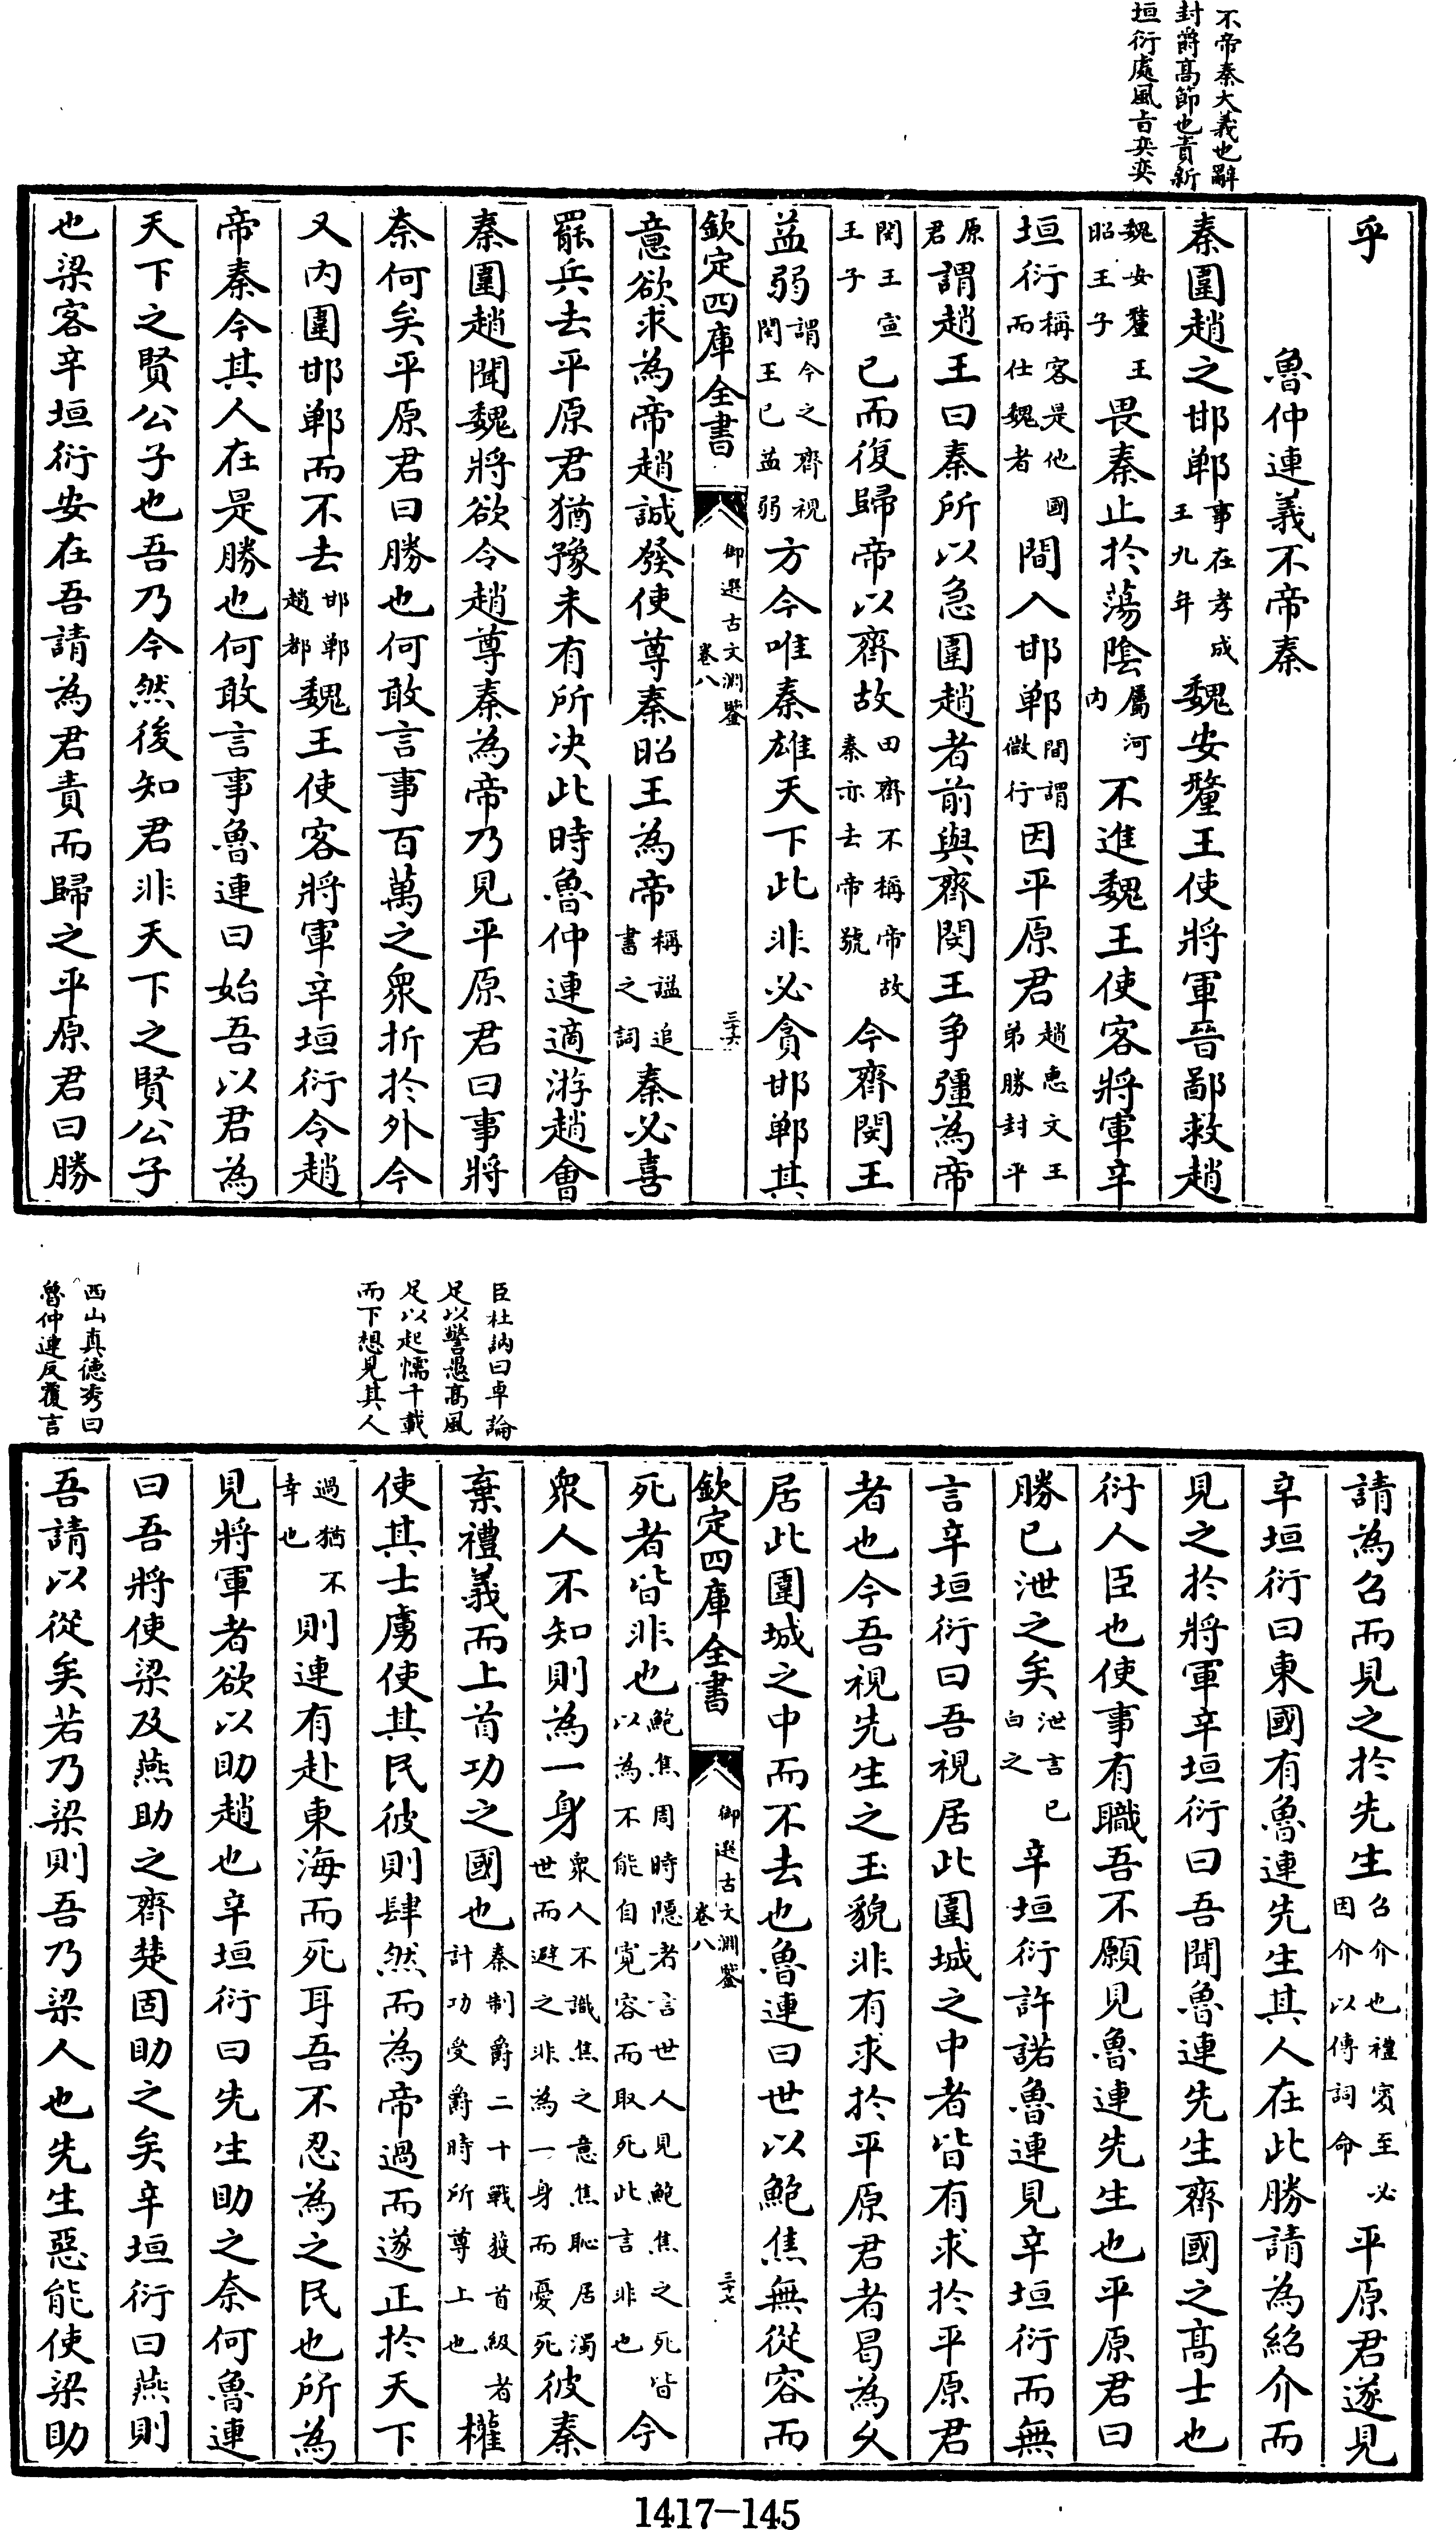 不帝秦大義也辭
封爵高節也責新
垣衍處風旨奕奕
乎
魯仲連義不帝秦
秦圍趙之邯鄲事在孝成王九年魏安釐王使將軍晉鄙救趙
魏安釐王昭王子畏秦止於蕩陰屬河內不進魏王使客將軍辛
垣衍稱客是他國而仕魏者間入邯鄲間謂微行因平原君趙惠文王弟勝封平
原君謂趙王曰秦所以急圍趙者前與齊閔王爭彊為帝
閔王宣王子已而復歸帝以齊故田齊不稱帝故秦亦去帝號今齊閔王
益弱謂今之齊視閔王已益弱方今唯秦雄天下此非必貪邯鄲其
欽定四庫全書
御選古文淵鑒
卷八
三十六
意欲求為帝趙誠發使尊秦昭王為帝稱謚追書之詞秦必喜
罷兵去平原君猶豫未有所決此時魯仲連適游趙會
秦圍趙聞魏將欲令趙尊秦為帝乃見平原君曰事將
奈何矣平原君曰勝也何敢言事百萬之眾折於外今
又內圍邯鄲而不去邯鄲趙都魏王使客將軍辛垣衍令趙
帝秦今其人在是勝也何敢言事魯連曰始吾以君為
天下之賢公子也吾乃今然後知君非天下之賢公子
也梁客辛垣衍安在吾請為君責而歸之平原君曰勝
臣杜訥曰卓論
足以警愚高風
足以起懦千載
而下想見其人
西山真德秀曰
魯仲連反覆言
請為召而見之於先生召介也禮賓至必因介以傳詞命平原君遂見
辛垣衍曰東國有魯連先生其人在此勝請為紹介而
見之於將軍辛垣衍曰吾聞魯連先生齊國之高士也
衍人臣也使事有職吾不願見魯連先生也平原君曰
勝已泄之矣泄言已白之辛垣衍許諾魯連見辛垣衍而無
言辛垣衍曰吾視居此圍城之中者皆有求於平原君
者也今吾視先生之玉貌非有求於平原君者曷為久
居此圍城之中而不去也魯連曰世以鮑焦無從容而
欽定四庫全書
御選古文淵鑒
卷八
三十七
死者皆非也鮑焦周時隱者言世人見鮑焦之死皆以為不能自寬容而取死此言非也今
眾人不知則為一身眾人不識焦之意焦恥居濁世而避之非為一身而憂死彼秦
棄禮義而上首功之國也秦制爵二十戰獲首級者計功受爵時所尊上也權
使其士虜使其民彼則肆然而為帝過而遂正於天下
過猶不幸也則連有赴東海而死耳吾不忍為之民也所為
見將軍者欲以助趙也辛垣衍曰先生助之奈何魯連
曰吾將使梁及燕助之齊楚固助之矣辛垣衍曰燕則
吾請以從矣若乃梁則吾乃梁人也先生惡能使梁助
1417-145